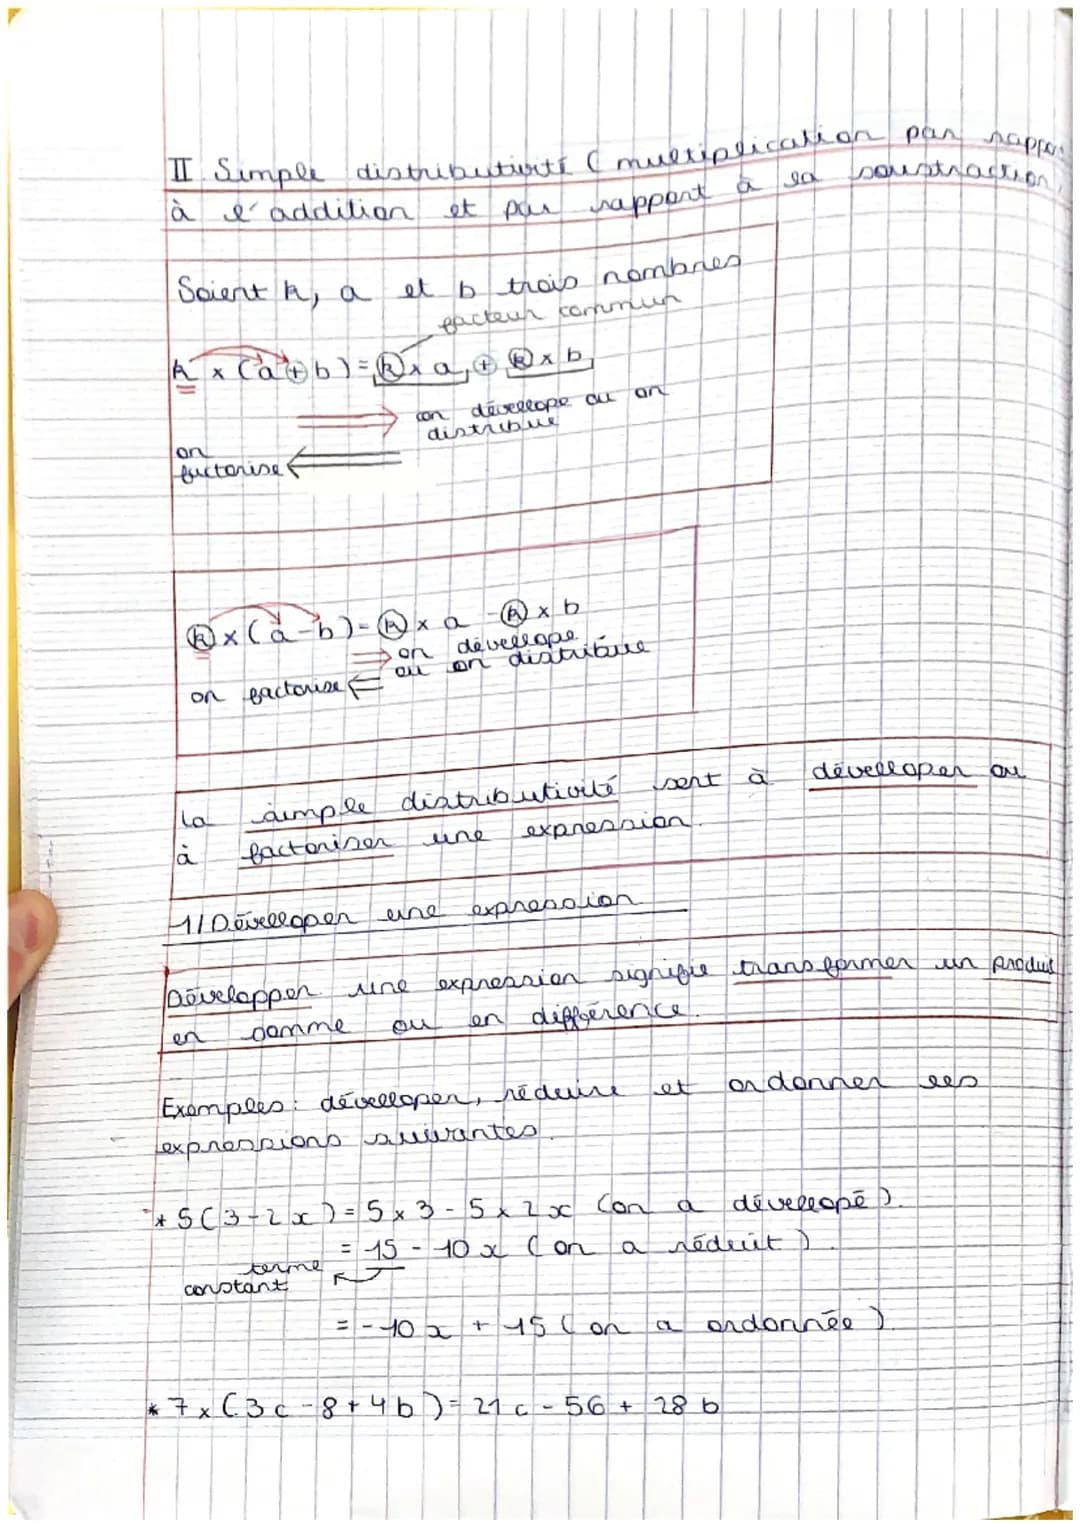 II Simple distributivité (multiplication par rappor
à l'addition et par rapport à la soustraction,
Soient k, a et b trois nombres
facteur commun
k x (a+b) = k x a + k x b
on développe ou on
distribue
on
factorise
k x (a-b) = k x a - k x b
on développe
ou on distribue
on factorise
La simple distributivité sert à développer ou
à factoriser une expression.
1/ Développer une expression
Développer une expression signifie transformer un produit
en somme ou en différence.
Exemples : développer, réduire et ordonner les
expressions suivantes.
* 5(3-2x) = 5 x 3 - 5 x 2x (on a développé).
= 15 - 10x (on a réduit).
terme
constant
= -10x + 15 (on a ordonnée).
* 7 x (3c - 8 + 4b) = 21c - 56 + 28b